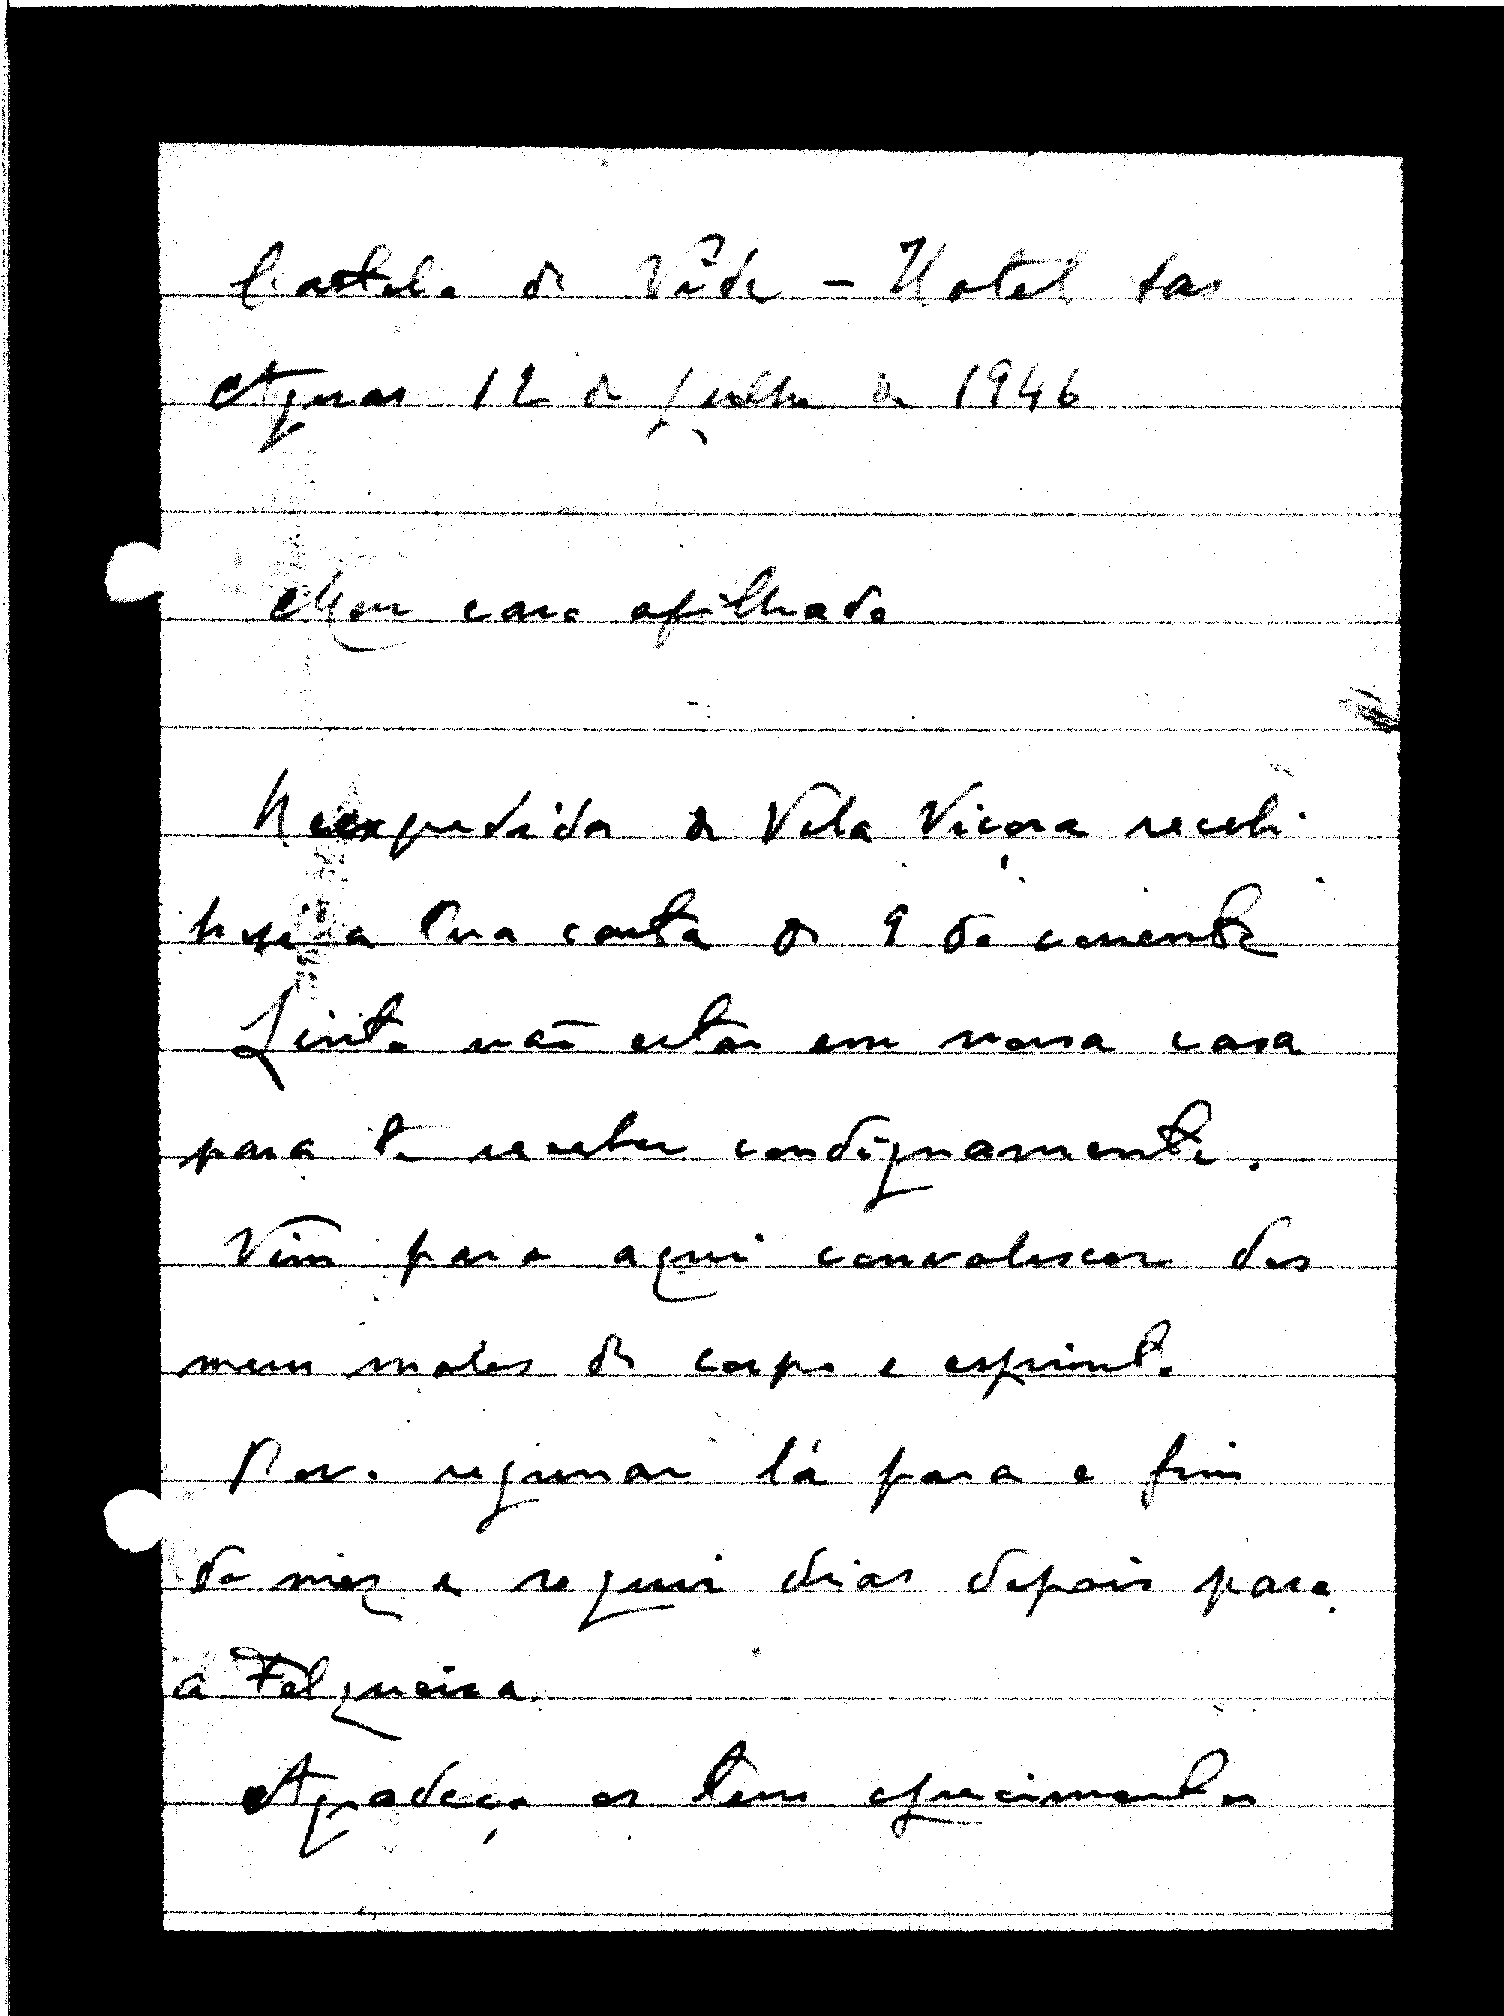 Castelo de Vide - Hotel das
Aguas 12 de Julho de 1946
Meu caro afilhado
Reexpedida de Vila Viçosa recebi
hoje a tua carta de 9 do corrente
Sinto não estar em nossa casa
para te receber condignamente.
Vim para aqui convalescer dos
meus males de corpo e espirito
regressar lá para o fim
do mez e seguir dias depois para
a Felgueira.
Agradeço os teus oferecimentos